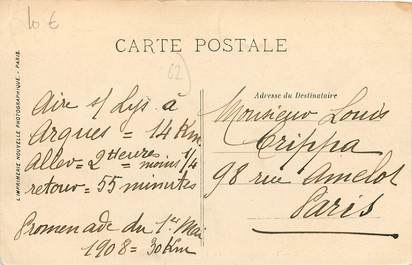 10 €
CARTE POSTALE
62
L'IMPRIMERIE NOUVELLE PHOTOGRAPHIQUE. - PARIS.
Aire s/ Lys à
Arques = 14 Km
Aller = 2 Heures moins 1/4
retour = 55 minutes
Promenade du 1er Mai
1908 = 30 Km
Adresse du Destinataire
Monsieur Louis
Crippa
98 rue Amelot
Paris